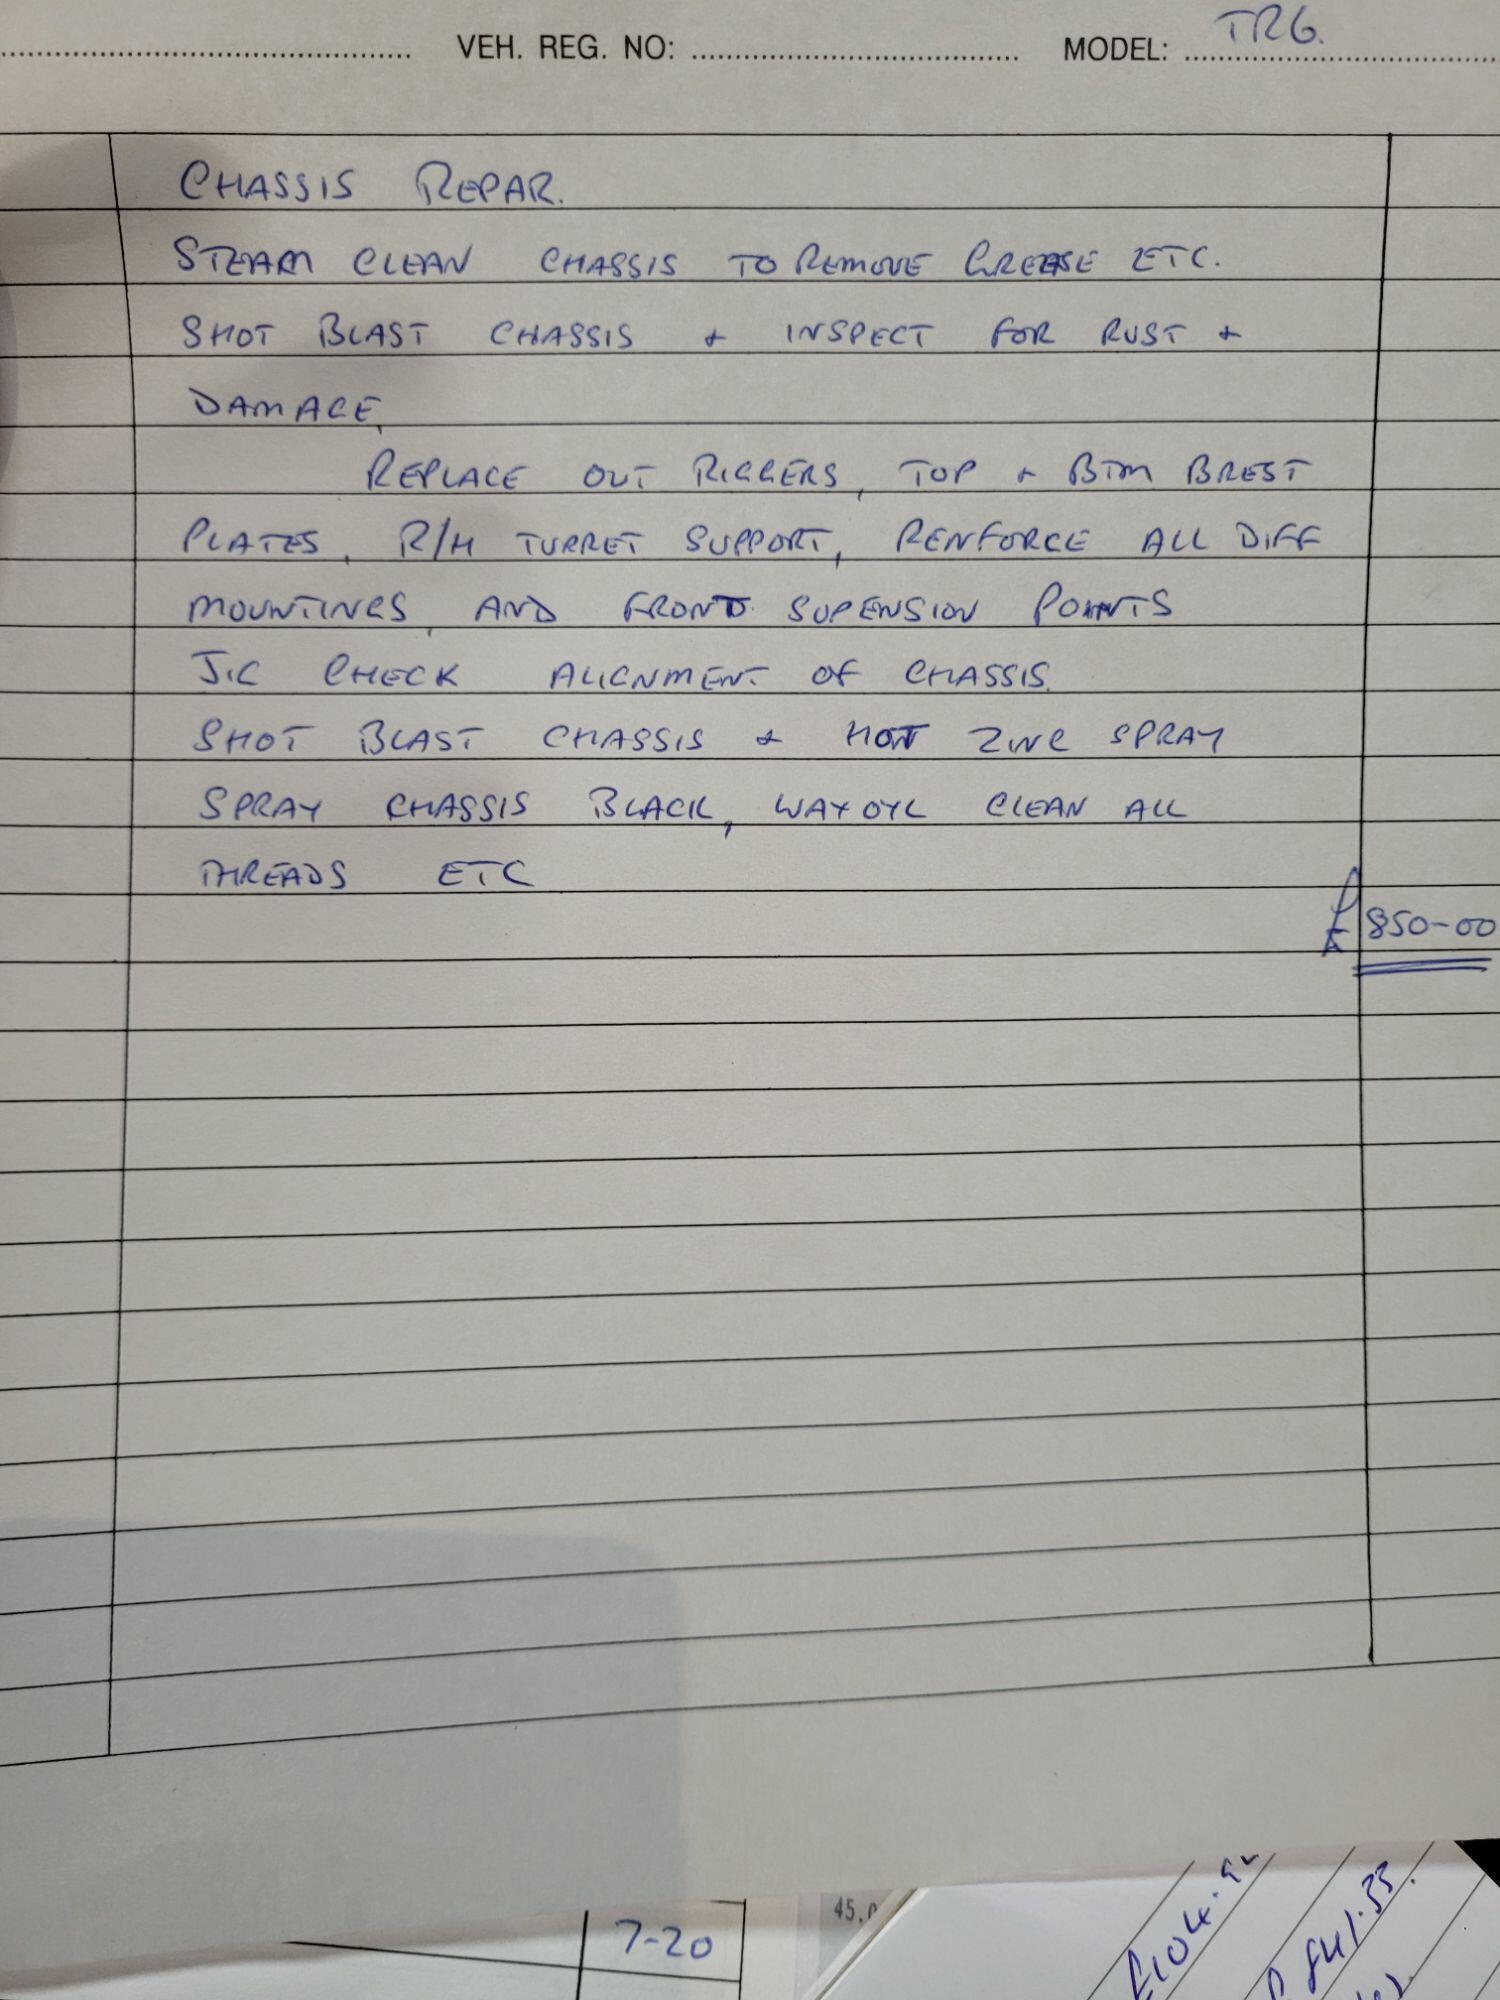 VEH. REG. NO: MODEL: TR6.
CHASSIS REPAR.
STEAM CLEAN CHASSIS TO REMOVE GREASE ETC.
SHOT BLAST CHASSIS + INSPECT FOR RUST +
DAMAGE,
REPLACE OUT RIGGERS, TOP + BTM BREST
PLATES, R/H TURRET SUPPORT, RENFORCE ALL DIFF
MOUNTINGS, AND FRONT SUPENSION POINTS
JIG CHECK ALIGNMENT OF CHASSIS.
SHOT BLAST CHASSIS + HOT ZINC SPRAY
SPRAY CHASSIS BLACK, WAXOYL CLEAN ALL
THREADS ETC
£850-00
7-20
45.0
£104.92
£41.33.